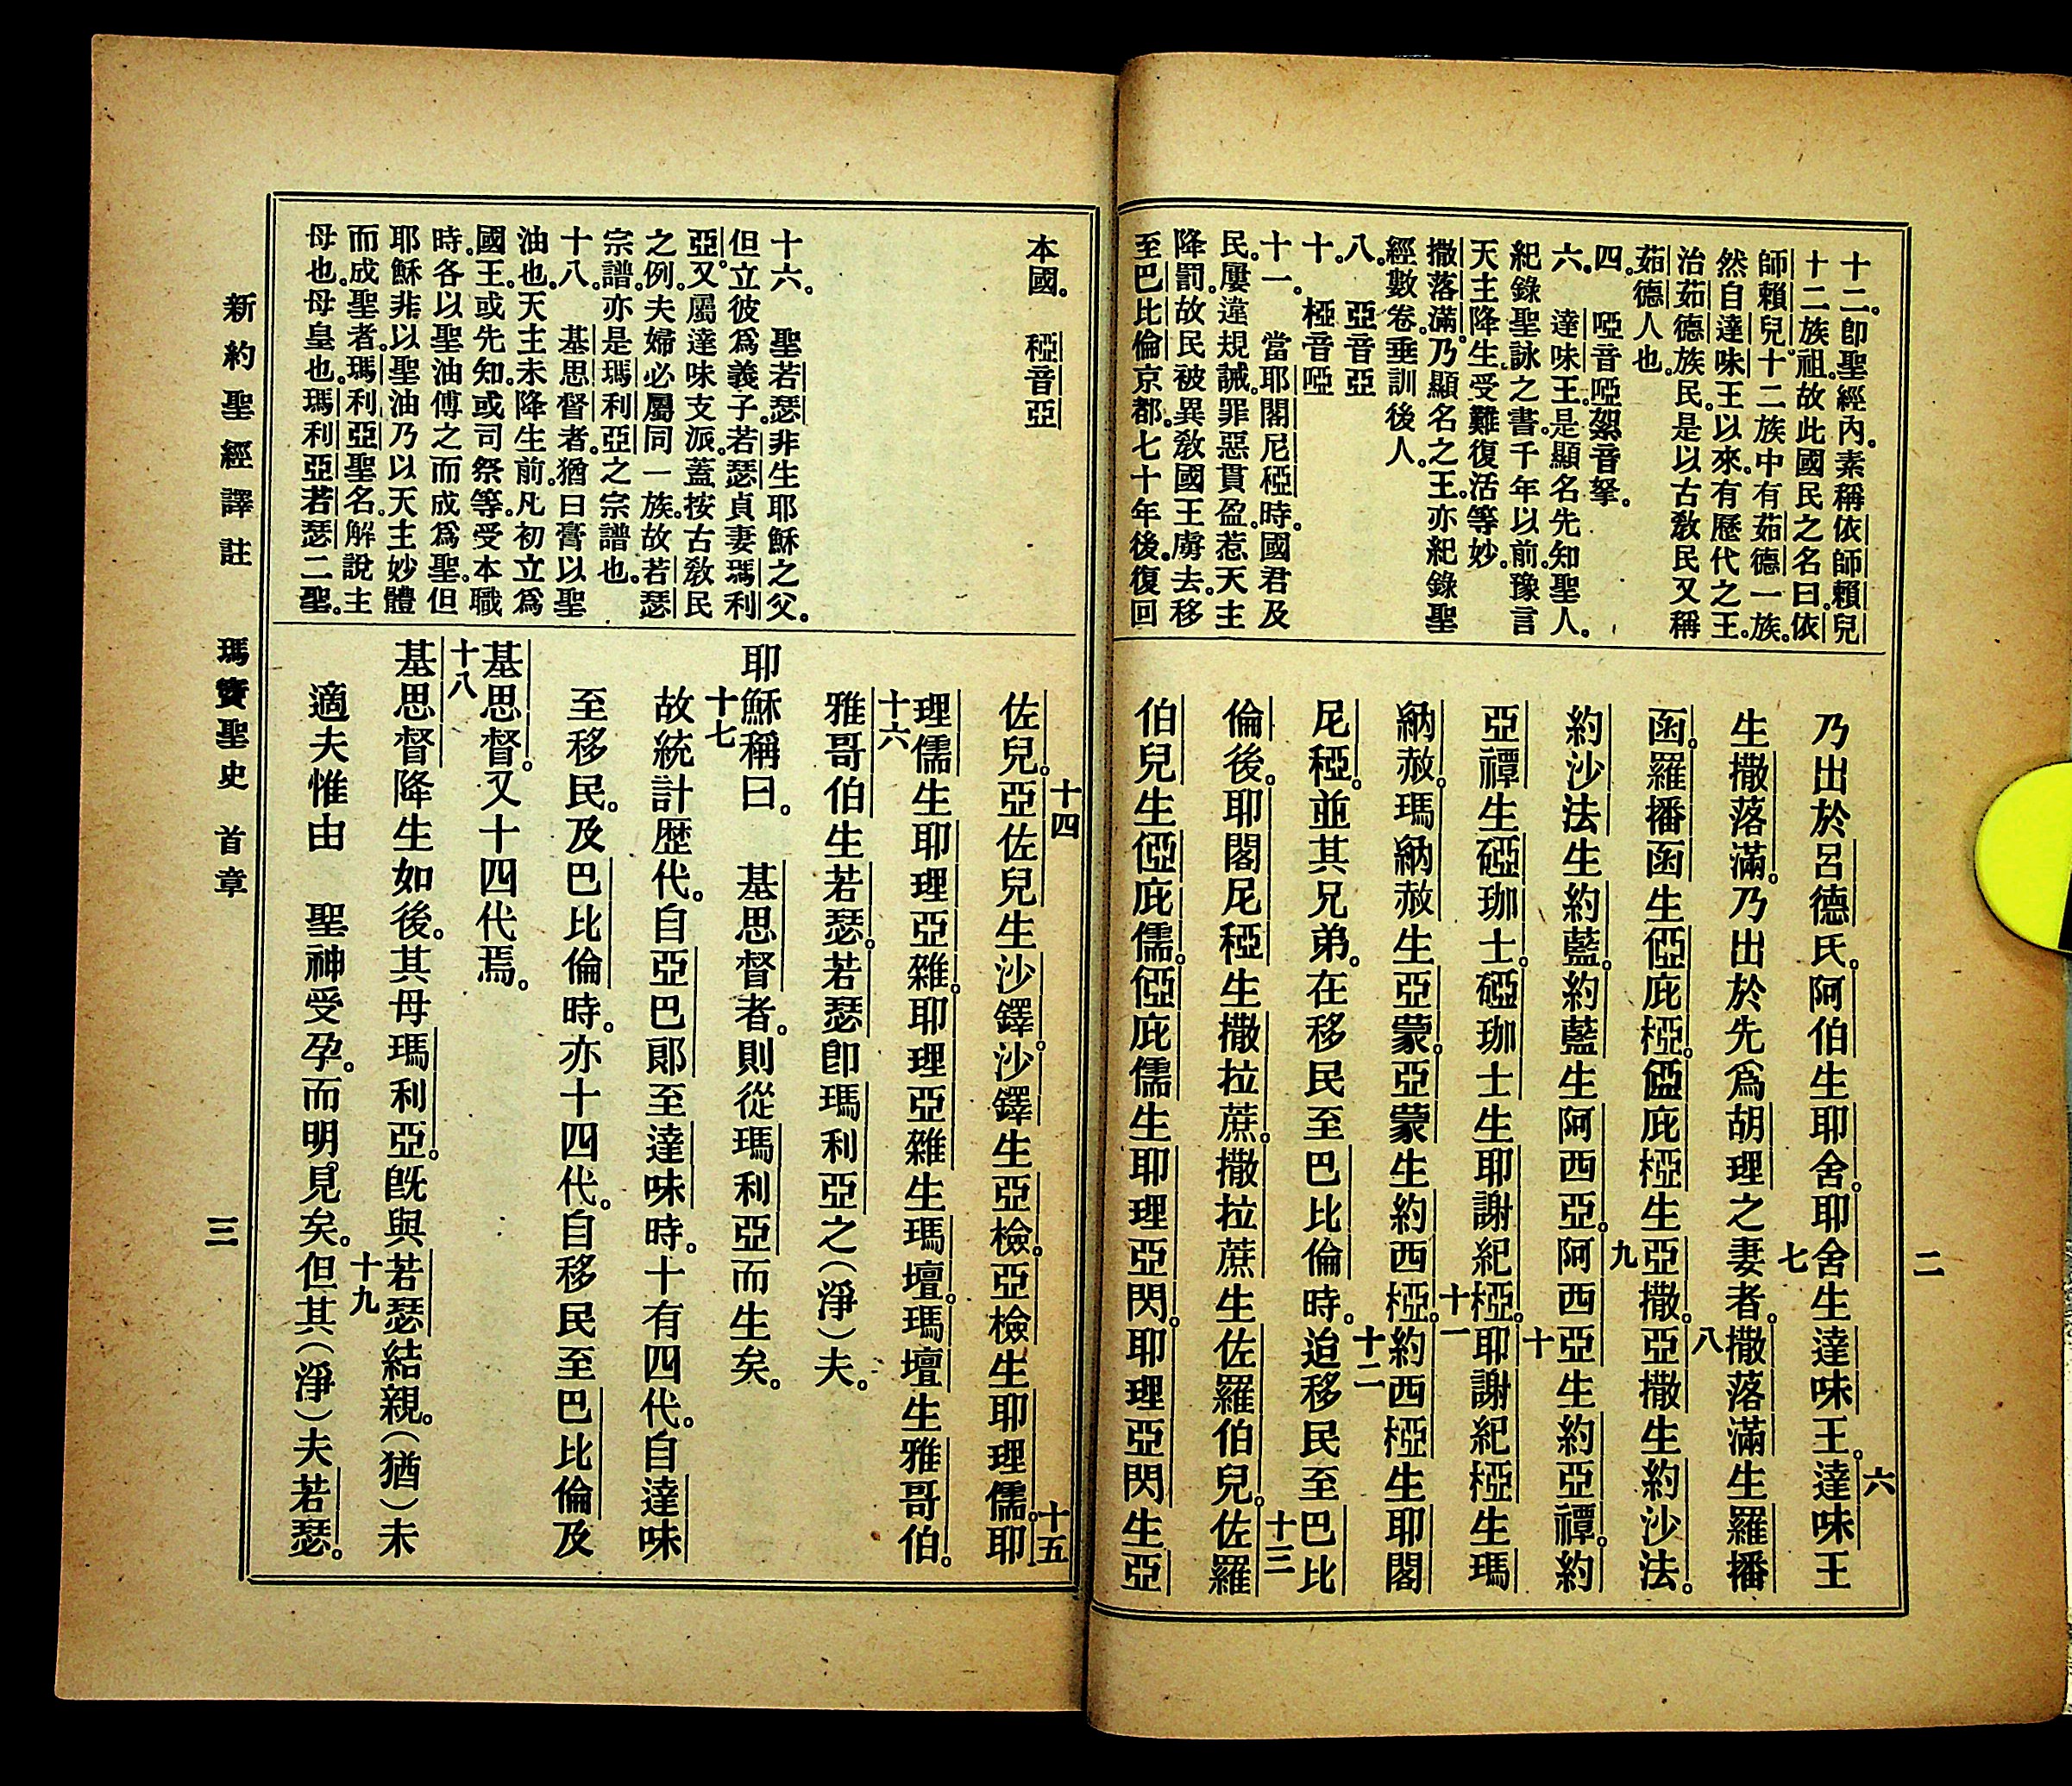 二
十二。卽聖經內。素稱依師賴兒
十二族祖。故此國民之名曰。依
師賴兒。十二族中有茹德一族。
然自達味王以來。有歷代之王。
治茹德族民。是以古敎民又稱
茹德人也。
四。啞音啞。絮音拏。
六。達味王。是顯名先知聖人。
紀錄聖詠之書。千年以前。豫言
天主降生。受難復活等妙。
撒落滿。乃顯名之王。亦紀錄聖
經數卷。垂訓後人。
八。亞音亞
十。椏音啞
十一。當耶閣尼稏時。國君及
民。屢違規誡。罪惡貫盈。惹天主
降罰。故民被異敎國王虜去。移
至巴比倫京都。七十年後。復回
乃出於呂德氏。阿伯生耶舍。耶舍生達味王。六達味王
生撒落滿。乃出於先爲胡理之妻者。七撒落滿生羅播
函。羅播函生俹庇椏。俹庇椏生亞撒。八亞撒生約沙法。
約沙法生約藍。約藍生阿西亞。九阿西亞生約亞禫。約
亞禫生硾珈士。硾珈士生耶謝紀椏。十耶謝紀椏生瑪
納赦。瑪納赦生亞蒙。亞蒙生約西椏。十一約西椏生耶閣
尼稏。並其兄弟。在移民至巴比倫時。十二迨移民至巴比
倫後。耶閣尼稏生撒拉蔗。撒拉蔗生佐羅伯兒。十三佐羅
伯兒生俹庇儒。俹庇儒生耶理亞閃。耶理亞閃生亞
本國。稏音亞
十六。聖若瑟。非生耶穌之父。
但立彼爲義子。若瑟貞妻瑪利
亞。又屬達味支派。蓋按古敎民
之例。夫婦必屬同一族。故若瑟
宗譜。亦是瑪利亞之宗譜也。
十八。基思督者。猶曰膏以聖
油也。天主未降生前。凡初立爲
國王。或先知。或司祭等。受本職
時。各以聖油傅之而成爲聖。但
耶穌非以聖油。乃以天主妙體
而成聖者。瑪利亞聖名。解說主
母也。母皇也。瑪利亞若瑟二聖。
佐兒。十四亞佐兒生沙鐸。沙鐸生亞檢。亞檢生耶理儒。十五耶
理儒生耶理亞雜。耶理亞雜生瑪壇。瑪壇生雅哥伯。
十六雅哥伯生若瑟。若瑟卽瑪利亞之（淨）夫。
耶穌稱曰。基思督者。則從瑪利亞而生矣。
十七故統計歷代。自亞巴郞至達味時。十有四代。自達味
至移民。及巴比倫時。亦十四代。自移民至巴比倫及
基思督。又十四代焉。
十八基思督降生如後。其母瑪利亞。旣與若瑟結親。（猶）未
適夫惟由 聖神受孕。而明見矣。十九但其（淨）夫若瑟。
新約聖經譯註 瑪竇聖史 首章 三